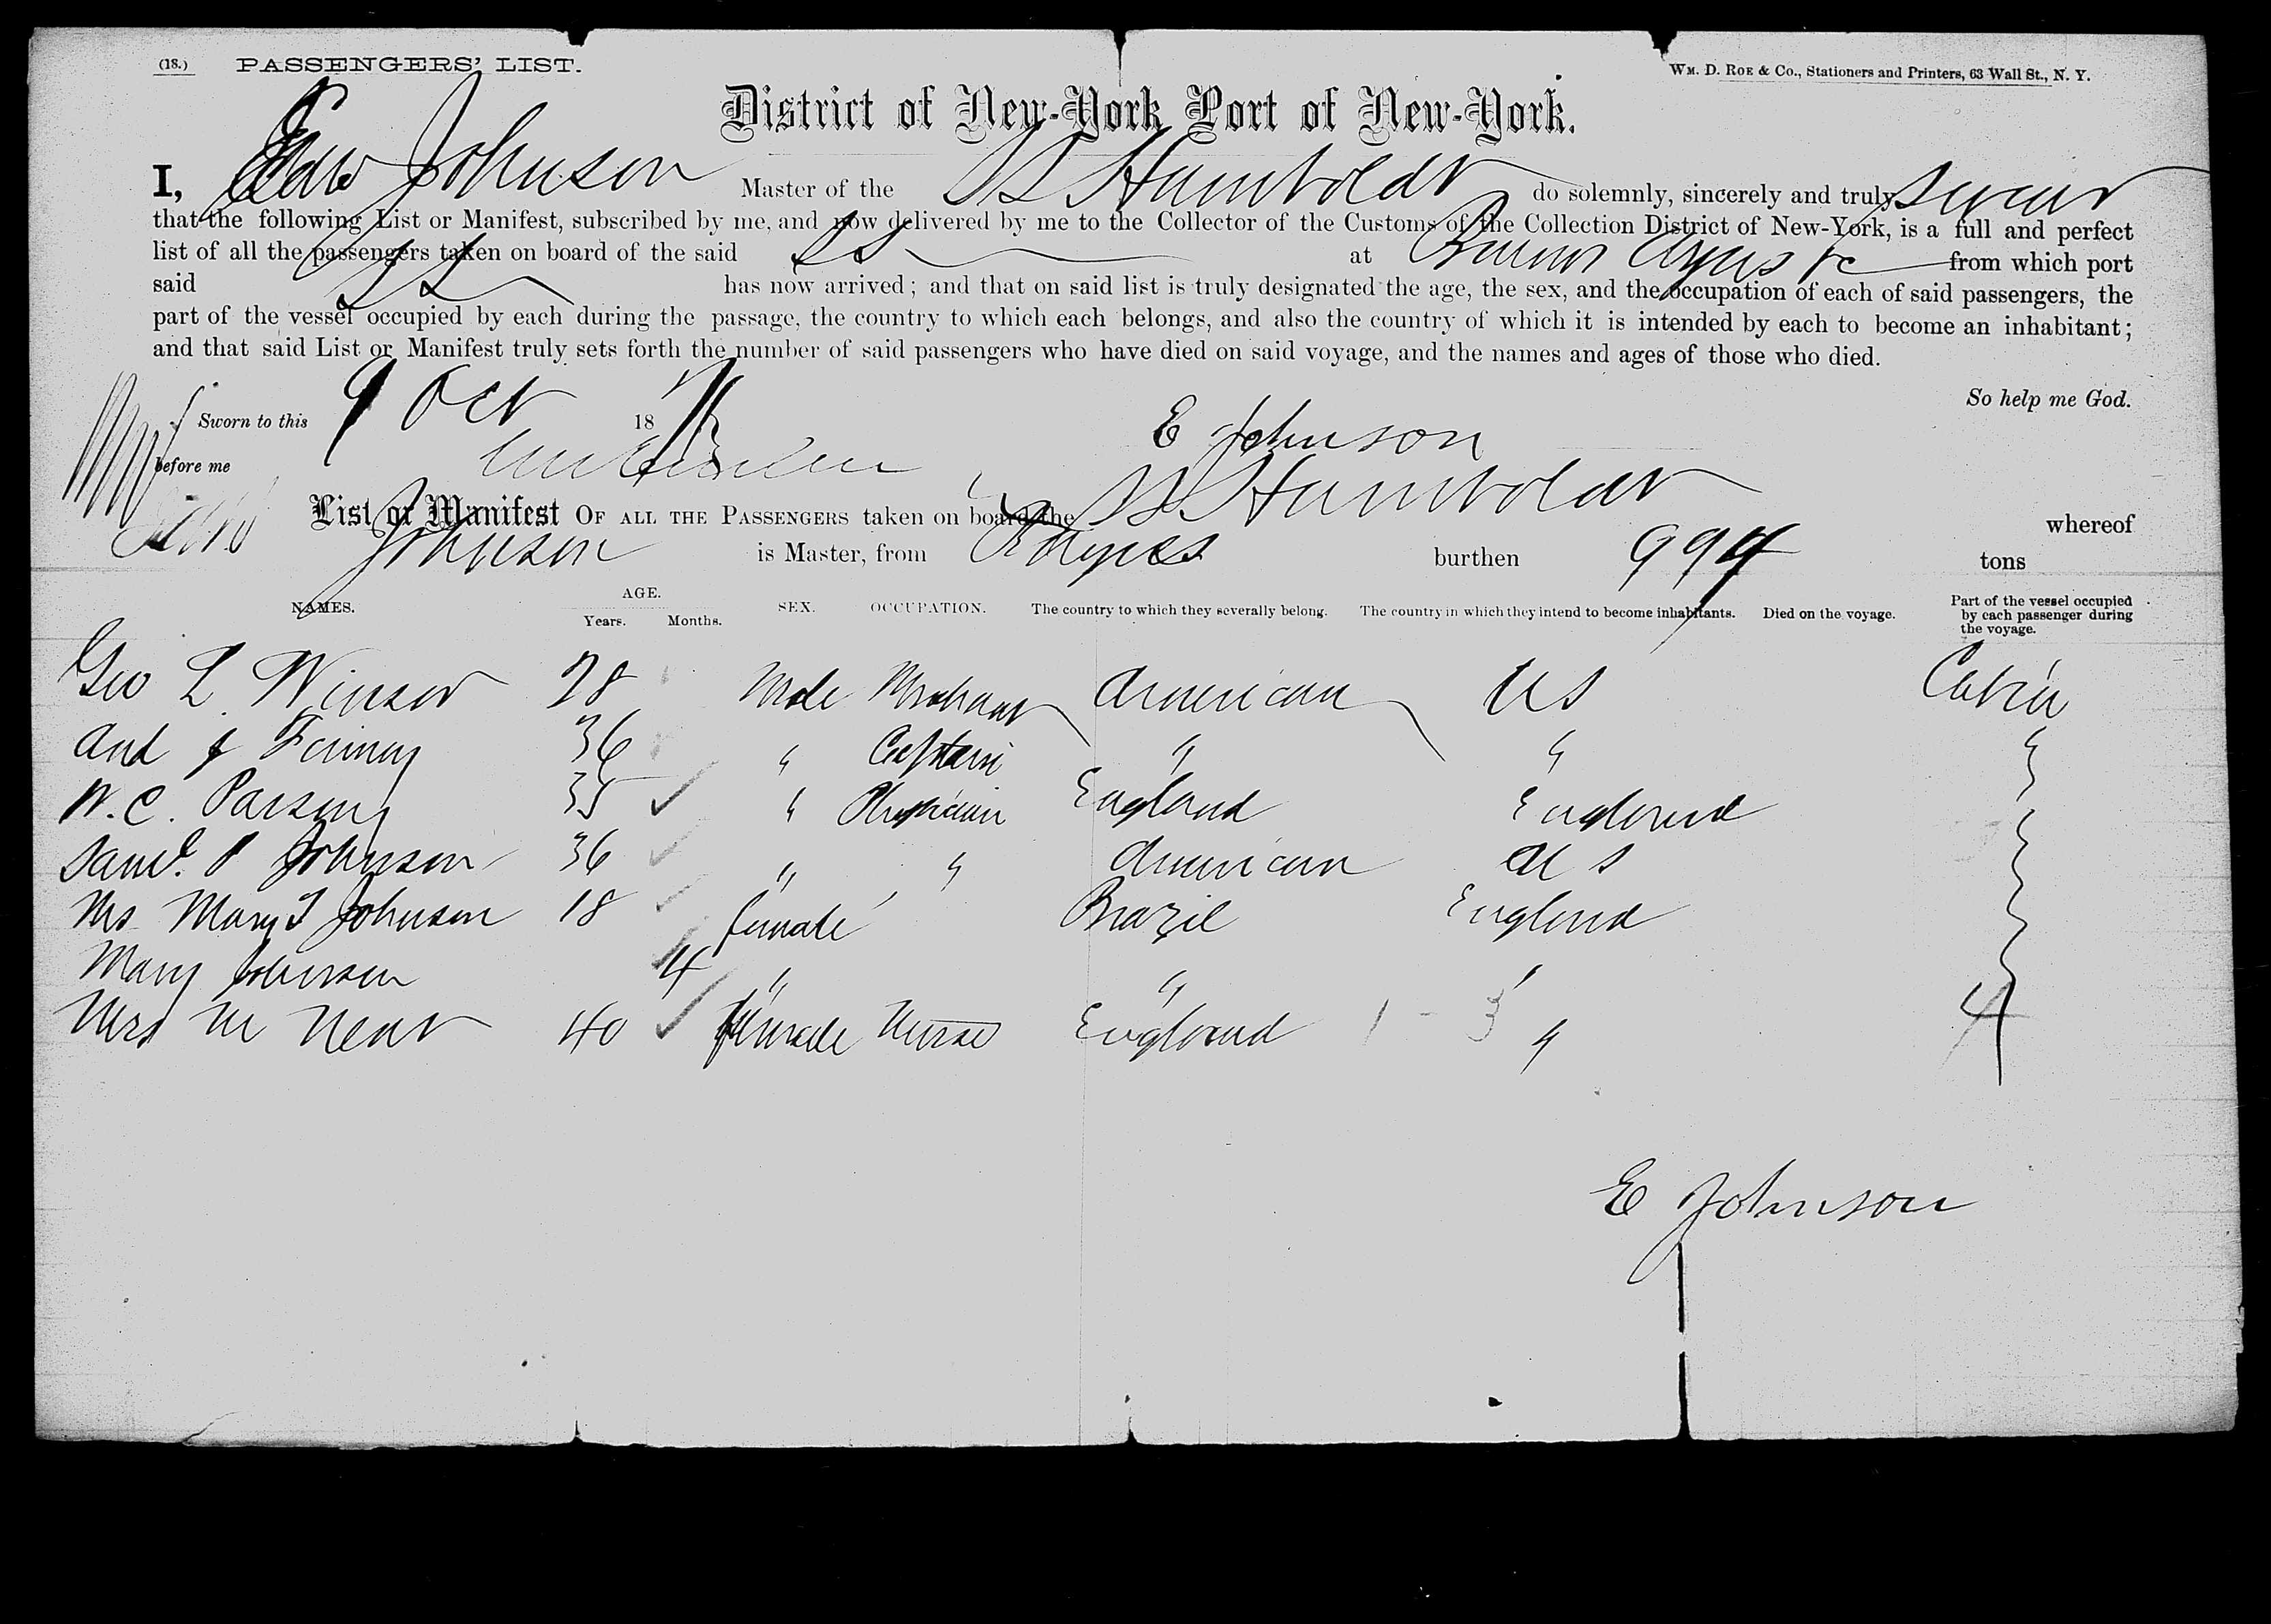 (18.) PASSENGERS' LIST. Wm. D. Roe & Co., Stationers and Printers, 63 Wall St., N. Y.
District of New-York Port of New-York.
I, Edw Johnson Master of the SS Humboldt do solemnly, sincerely and truly swear
that the following List or Manifest, subscribed by me, and now delivered by me to the Collector of the Customs of the Collection District of New-York, is a full and perfect
list of all the passengers taken on board of the said SS at Buenos Ayres &c from which port
said SS has now arrived; and that on said list is truly designated the age, the sex, and the occupation of each of said passengers, the
part of the vessel occupied by each during the passage, the country to which each belongs, and also the country of which it is intended by each to become an inhabitant;
and that said List or Manifest truly sets forth the number of said passengers who have died on said voyage, and the names and ages of those who died.
So help me God.
Sworn to this 9 Oct 18
E Johnson
before me
List or Manifest OF ALL THE PASSENGERS taken on board the SS Humboldt whereof
Edw Johnson is Master, from burthen 994 tons
NAMES. AGE. Years. Months. SEX. OCCUPATION. The country to which they severally belong. The country in which they intend to become inhabitants. Died on the voyage. Part of the vessel occupied by each passenger during the voyage.
Geo L Winsor 28 Male Merchant American US Cabin
And J 36 " Captain " " "
W. C. Parsons 35 " Physician England England
Saml. P Johnson 36 " " American U S
Mrs Mary T Johnson 18 female Brazil England
Mary Johnson 4 " " "
Mrs M Neat 40 female Nurse England 1 - 3 "
4
E Johnson